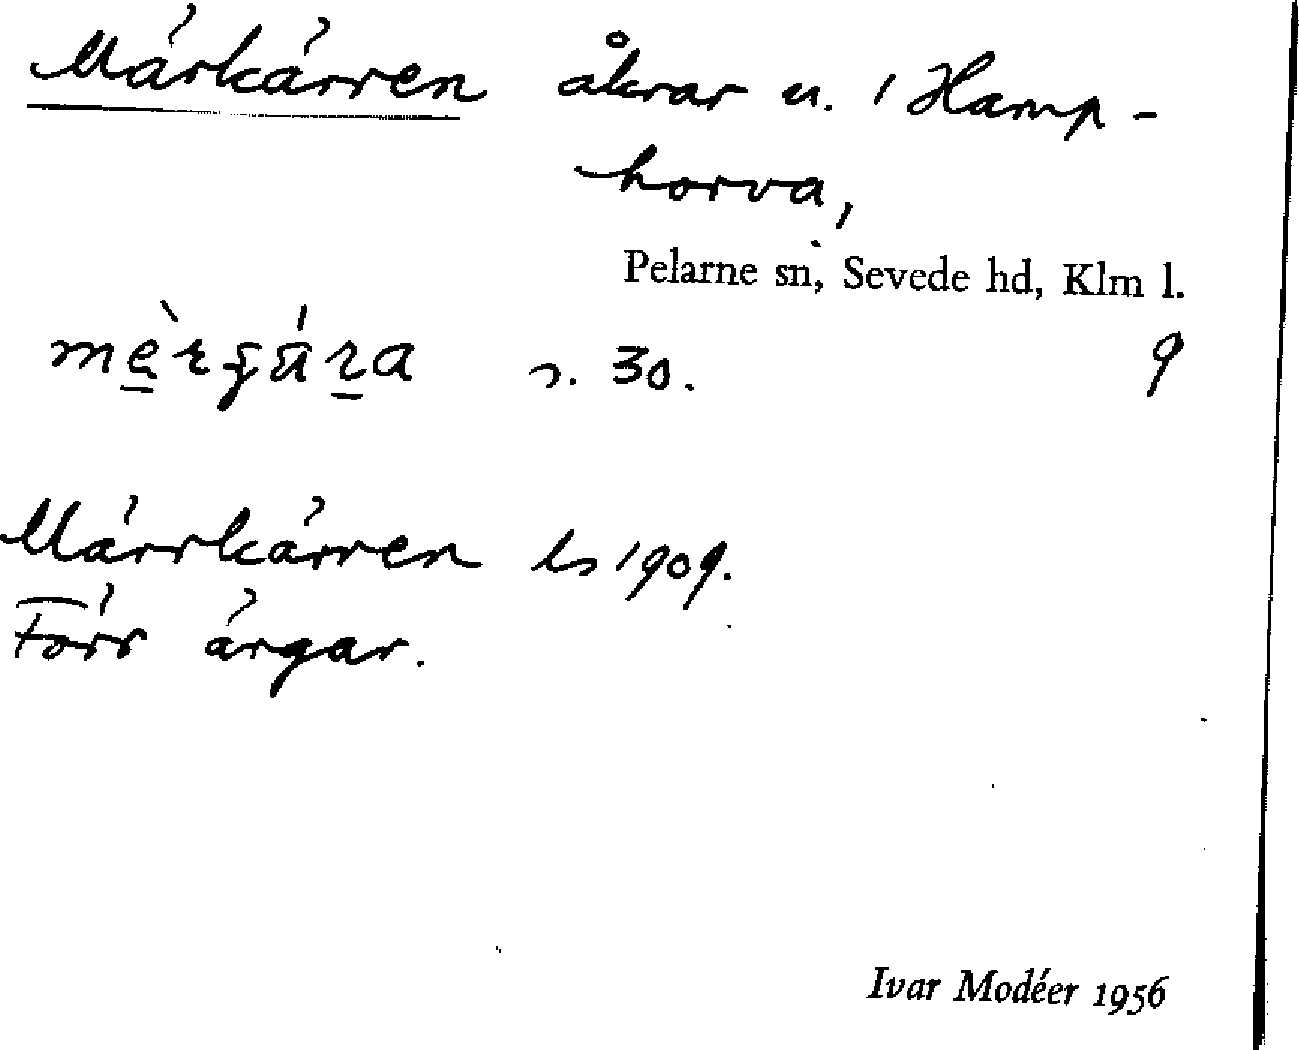 Märkärren åkrar n. 1 Hamp-
horva,
Pelarne sn, Sevede hd, Klm l.
s. 30. 9
Märrkärren ls 1909.
Förr ärgar.
Ivar Modéer 1956